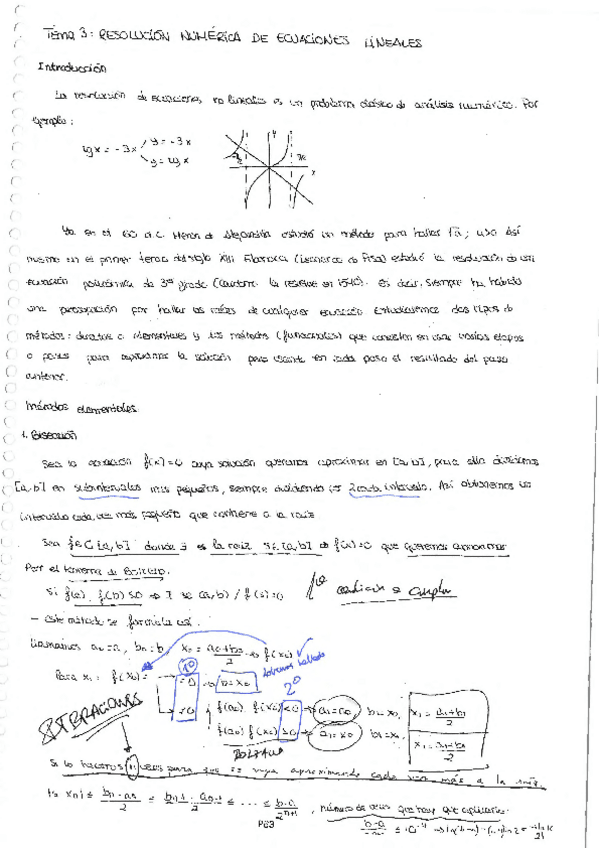 Tema 3: RESOLUCIÓN NUMÉRICA DE ECUACIONES LINEALES
Introducción
La resolución de ecuaciones no lineales es un problema clásico de análisis numérico. Por
ejemplo:
tg x = -3x
y = -3x
y = tg x
y
x
Ya en el 60 d.C. Heron de Alejandría estudió un método para hallar √a; asi
mismo en el primer tercio del siglo XIII Fibonacci (Leonardo de Pisa) estudió la resolución de una
ecuación polinómica de 3er grado (la resolvió en 1540). Es decir, siempre ha habido
una preocupación por hallar las raíces de cualquier ecuación. Estudiaremos dos tipos de
métodos: elementales y los métodos (funcionales) que consisten en usar varias etapas
o pasos para aproximar la solución pero usando en cada paso el resultado del paso
anterior.
Métodos elementales
1. Bisección
Sea la ecuación f(x)=0 cuya solución queremos aproximar en [a,b], para ello dividimos
[a,b] en subintervalos más pequeños, siempre dividiendo por 2 cada intervalo. Así obtenemos un
intervalo cada vez más pequeño que contiene a la raíz
Sea f∈C[a,b] donde s es la raíz s∈[a,b] de f(x)=0 que queremos aproximar
Por el teorema de Bolzano.
Si f(a)·f(b)≤0 ⇒ ∃ s∈(a,b) / f(s)=0
1º condición a cumplir
- este método se formula así:
Llamamos a₀=a, b₀=b, x₀ = (a₀+b₀)/2 → f(x₀)
Para x₁: f(x₀) =
1º
=0 → s=x₀
2º
≠0
f(a₀)·f(x₀)<0 → a₁=a₀, b₁=x₀, x₁ = (a₁+b₁)/2
f(a₀)·f(x₀)>0 → a₁=x₀ x₁ = (a₁+b₁)/2
ITERACIONES
BOLZANO
Si lo hacemos n veces para que se vaya aproximando cada vez más a la raíz.
número de veces que hay que aplicarlo.